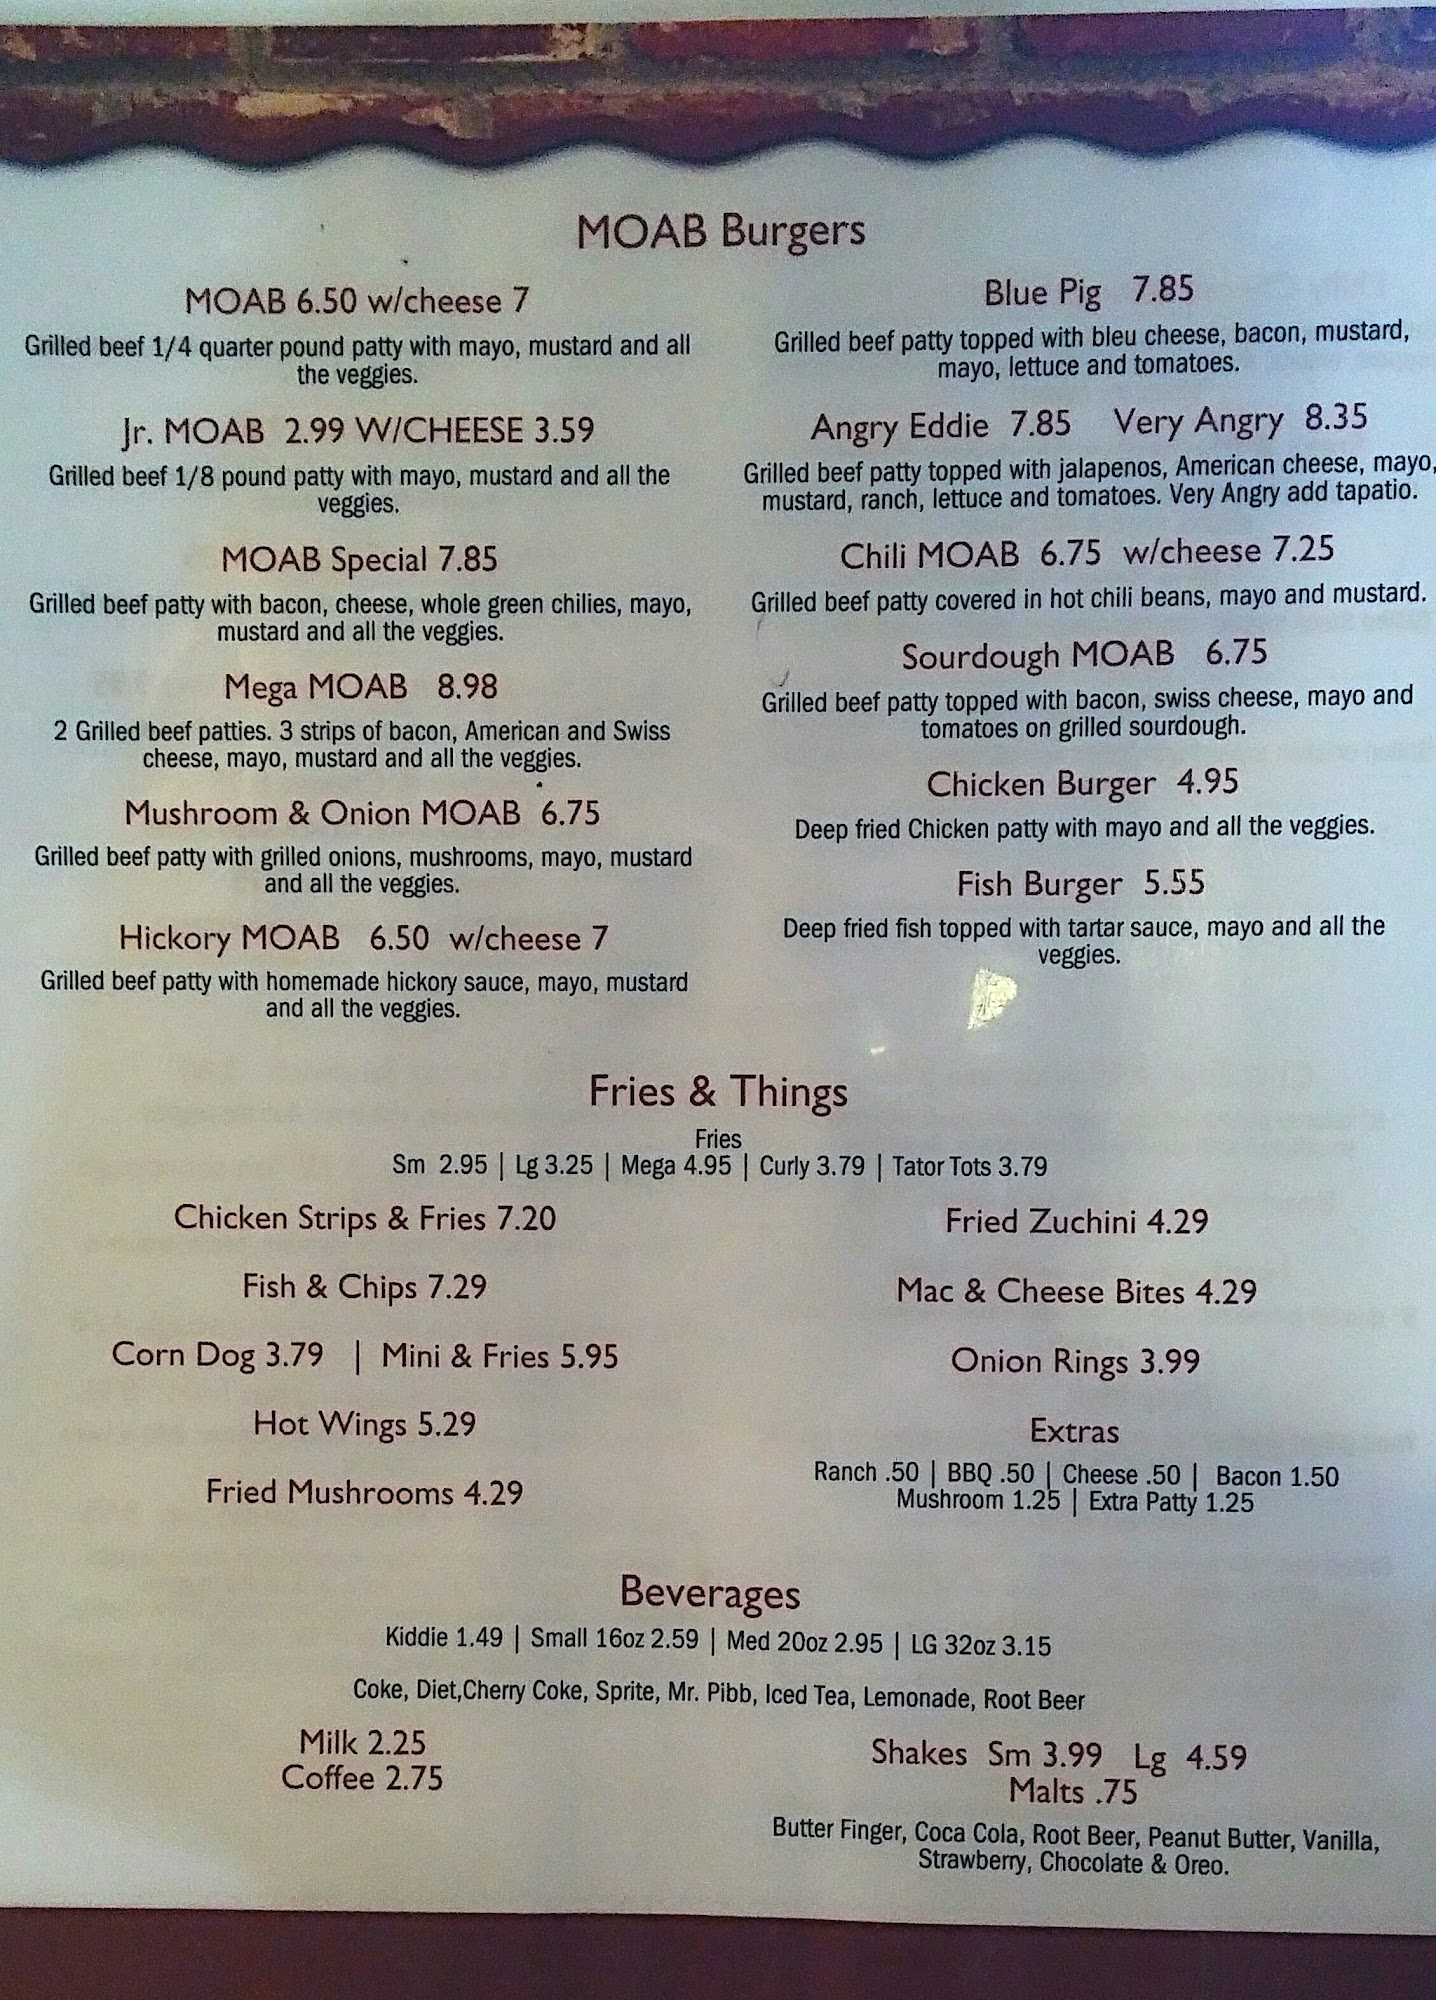 MOAB Burgers
MOAB 6.50 w/cheese 7
Grilled beef 1/4 quarter pound patty with mayo, mustard and all
the veggies.
Jr. MOAB 2.99 W/CHEESE 3.59
Grilled beef 1/8 pound patty with mayo, mustard and all the
veggies.
MOAB Special 7.85
Grilled beef patty with bacon, cheese, whole green chilies, mayo,
mustard and all the veggies.
Mega MOAB 8.98
2 Grilled beef patties. 3 strips of bacon, American and Swiss
cheese, mayo, mustard and all the veggies.
Mushroom & Onion MOAB 6.75
Grilled beef patty with grilled onions, mushrooms, mayo, mustard
and all the veggies.
Hickory MOAB 6.50 w/cheese 7
Grilled beef patty with homemade hickory sauce, mayo, mustard
and all the veggies.
Blue Pig 7.85
Grilled beef patty topped with bleu cheese, bacon, mustard,
mayo, lettuce and tomatoes.
Angry Eddie 7.85 Very Angry 8.35
Grilled beef patty topped with jalapenos, American cheese, mayo,
mustard, ranch, lettuce and tomatoes. Very Angry add tapatio.
Chili MOAB 6.75 w/cheese 7.25
Grilled beef patty covered in hot chili beans, mayo and mustard.
Sourdough MOAB 6.75
Grilled beef patty topped with bacon, swiss cheese, mayo and
tomatoes on grilled sourdough.
Chicken Burger 4.95
Deep fried Chicken patty with mayo and all the veggies.
Fish Burger 5.55
Deep fried fish topped with tartar sauce, mayo and all the
veggies.
Fries & Things
Fries
Sm 2.95 | Lg 3.25 | Mega 4.95 | Curly 3.79 | Tator Tots 3.79
Chicken Strips & Fries 7.20
Fish & Chips 7.29
Corn Dog 3.79 | Mini & Fries 5.95
Hot Wings 5.29
Fried Mushrooms 4.29
Fried Zuchini 4.29
Mac & Cheese Bites 4.29
Onion Rings 3.99
Extras
Ranch .50 | BBQ .50 | Cheese .50 | Bacon 1.50
Mushroom 1.25 | Extra Patty 1.25
Beverages
Kiddie 1.49 | Small 16oz 2.59 | Med 20oz 2.95 | LG 32oz 3.15
Coke, Diet,Cherry Coke, Sprite, Mr. Pibb, Iced Tea, Lemonade, Root Beer
Milk 2.25
Coffee 2.75
Shakes Sm 3.99 Lg 4.59
Malts .75
Butter Finger, Coca Cola, Root Beer, Peanut Butter, Vanilla,
Strawberry, Chocolate & Oreo.